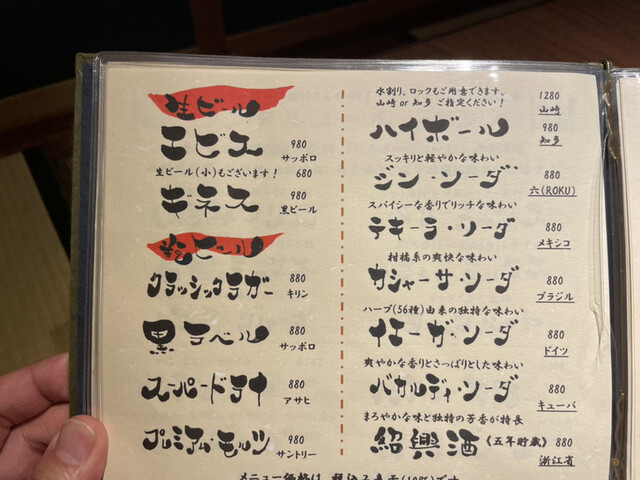 生ビール
エビス 980
サッポロ
生ビール(小)もございます! 680
ギネス 980
黒ビール
瓶ビール
クラッシックラガー 880
キリン
黒ラベル 880
サッポロ
スーパードライ 880
アサヒ
プレミアム・モルツ 980
サントリー
水割り、ロックもご用意できます。
山崎 or 知多 ご指定ください!
1280
山崎
ハイボール 980
知多
スッキリと軽やかな味わい
ジン・ソーダ 880
六(ROKU)
スパイシーな香りでリッチな味わい
テキーラ・ソーダ 880
メキシコ
柑橘系の爽快な味わい
カシャーサ・ソーダ 880
ブラジル
ハーブ(56種)由来の独特な味わい
イエーガ・ソーダ 880
ドイツ
爽やかな香りとさっぱりとした味わい
バカルディ・ソーダ 880
キューバ
まろやかな味と独特の芳香が特長
紹興酒 《五年貯蔵》 880
浙江省
メニュー価格は、税込み表示(10%)です